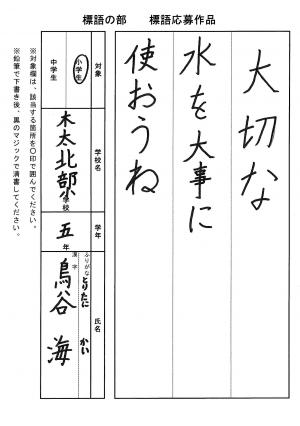 標語の部　　標語応募作品
大切な
水を大事に
使おうね
対象
小学生
中学生
学校名
木太北部小学校
学年
五年
氏名
ふりがな
とりたに　かい
漢字
鳥谷　海
※対象欄は、該当する箇所を〇印で囲んでください。
※鉛筆で下書き後、黒のマジックで清書してください。